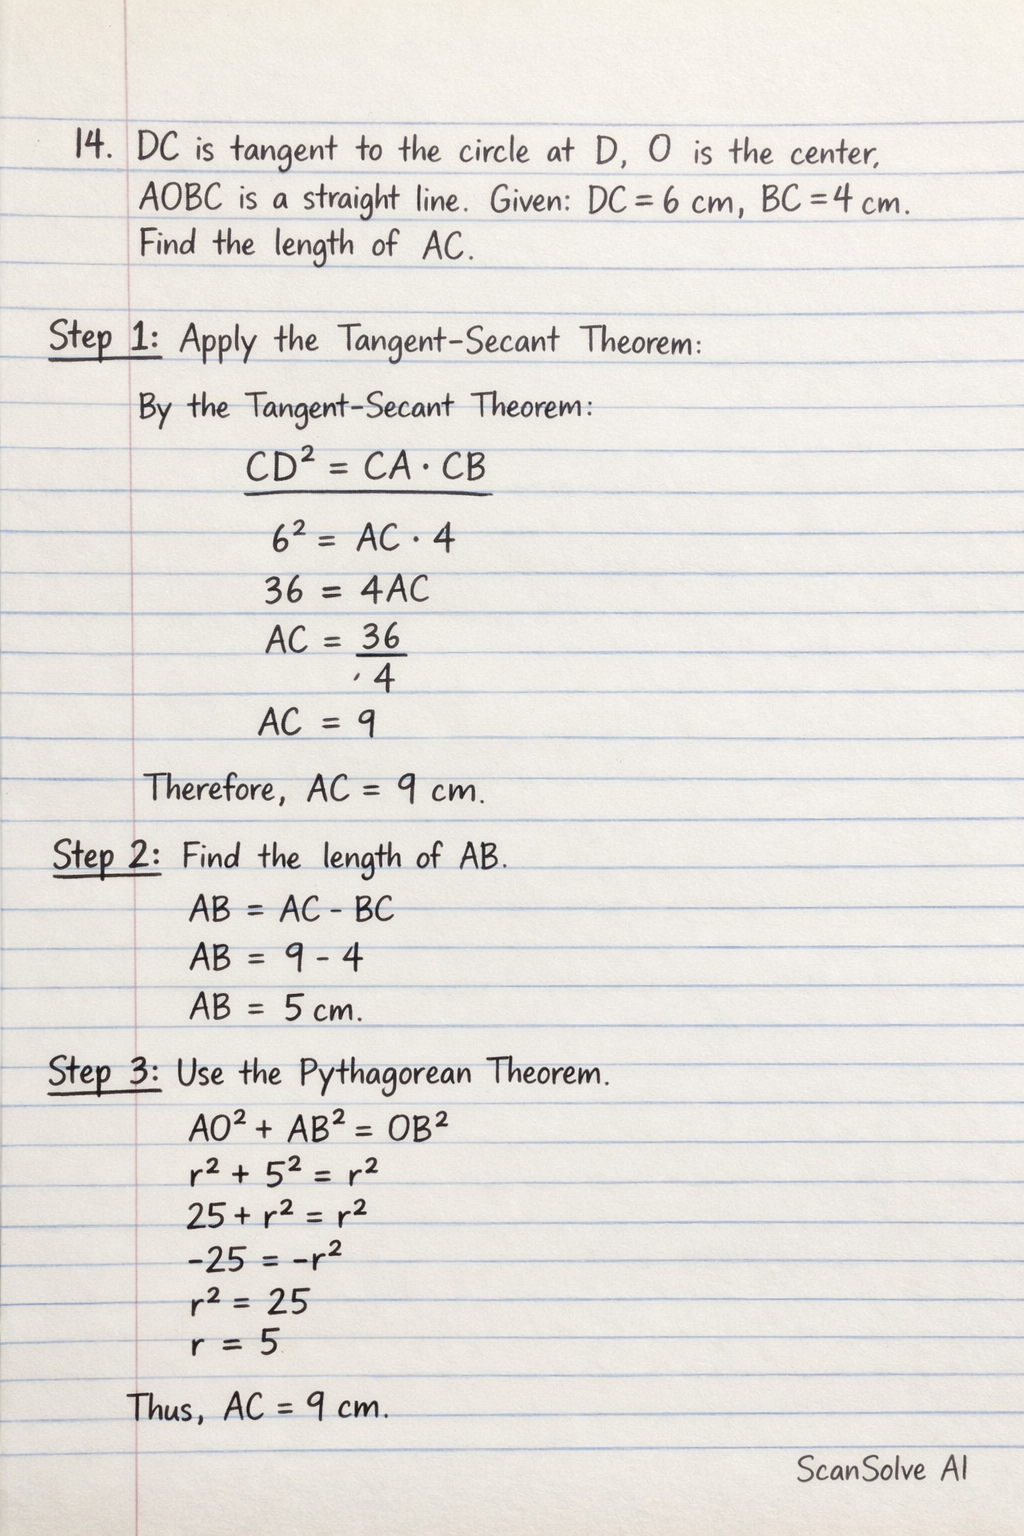 14. DC is tangent to the circle at D, O is the center,
AOBC is a straight line. Given: DC = 6 cm, BC = 4 cm.
Find the length of AC.
Step 1: Apply the Tangent-Secant Theorem:
By the Tangent-Secant Theorem:
CD² = CA · CB
6² = AC · 4
36 = 4AC
AC = 36/4
AC = 9
Therefore, AC = 9 cm.
Step 2: Find the length of AB.
AB = AC - BC
AB = 9 - 4
AB = 5 cm.
Step 3: Use the Pythagorean Theorem.
AO² + AB² = OB²
r² + 5² = r²
25 + r² = r²
-25 = -r²
r² = 25
r = 5
Thus, AC = 9 cm.
ScanSolve AI